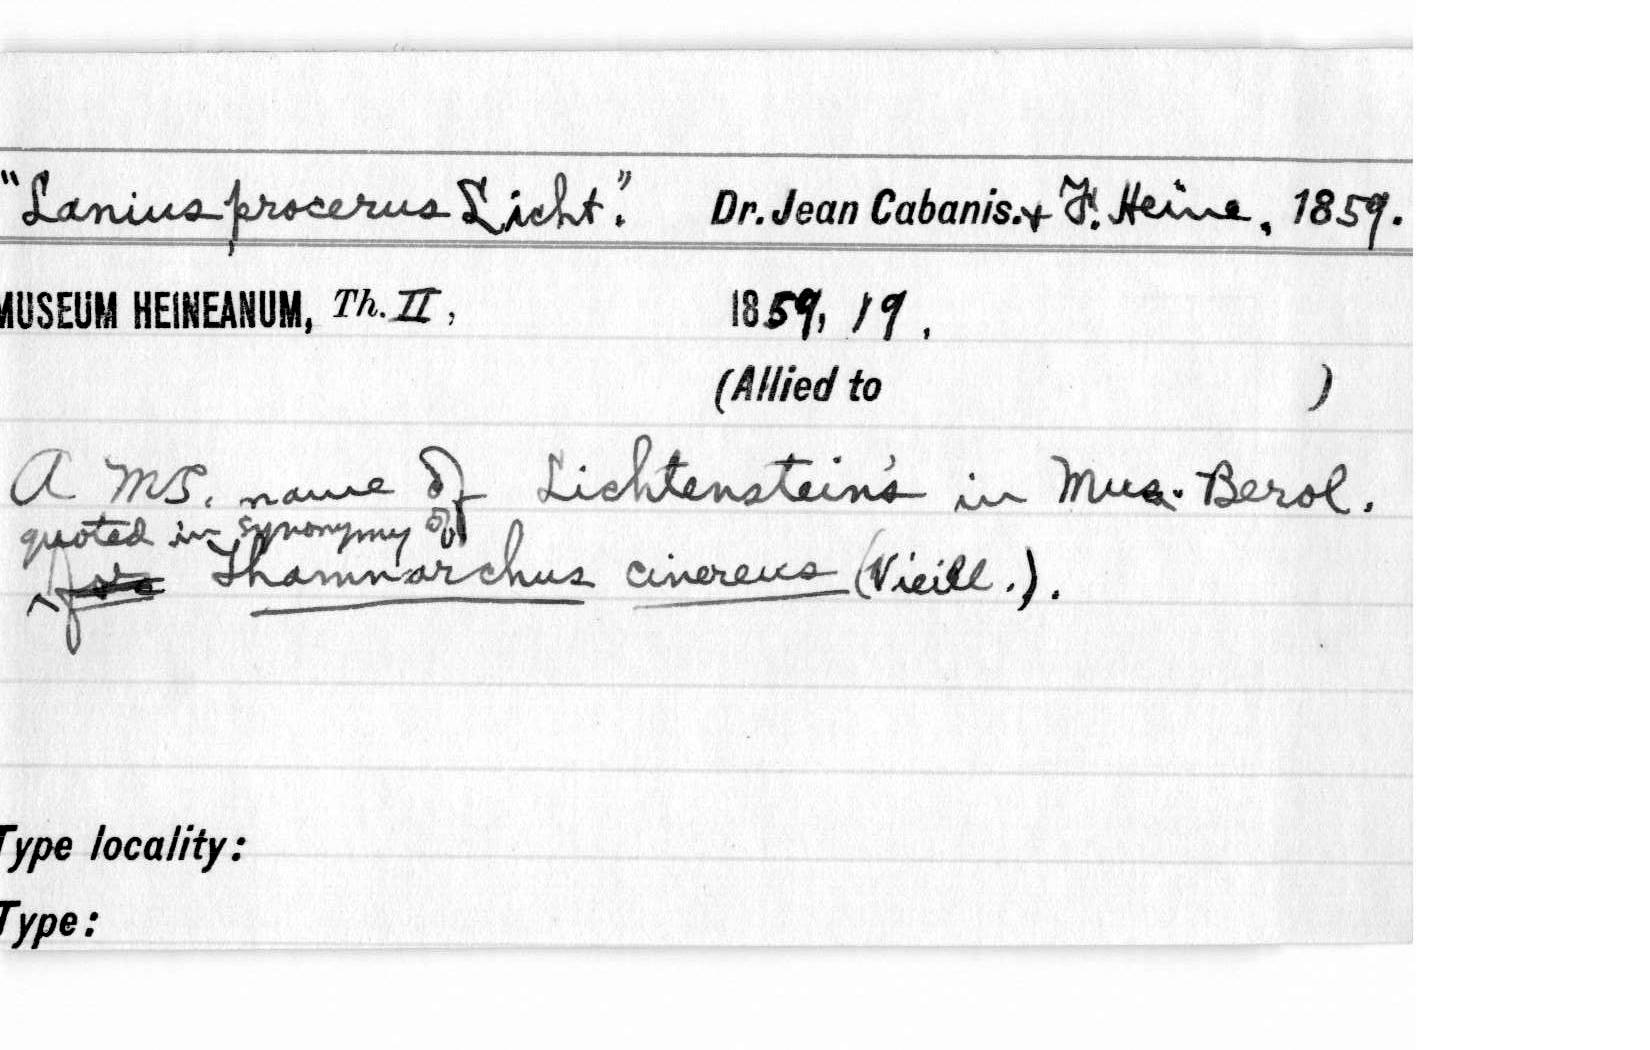 "Lanius procerus Licht." Dr. Jean Cabanis. & F. Heine, 1859.
MUSEUM HEINEANUM, Th. II, 1859, 19.
(Allied to )
A MS. name of Lichtenstein's in Mus. Berol.
quoted in synonymy of
for Thamnarchus cinereus (Vieill.).
Type locality:
Type: